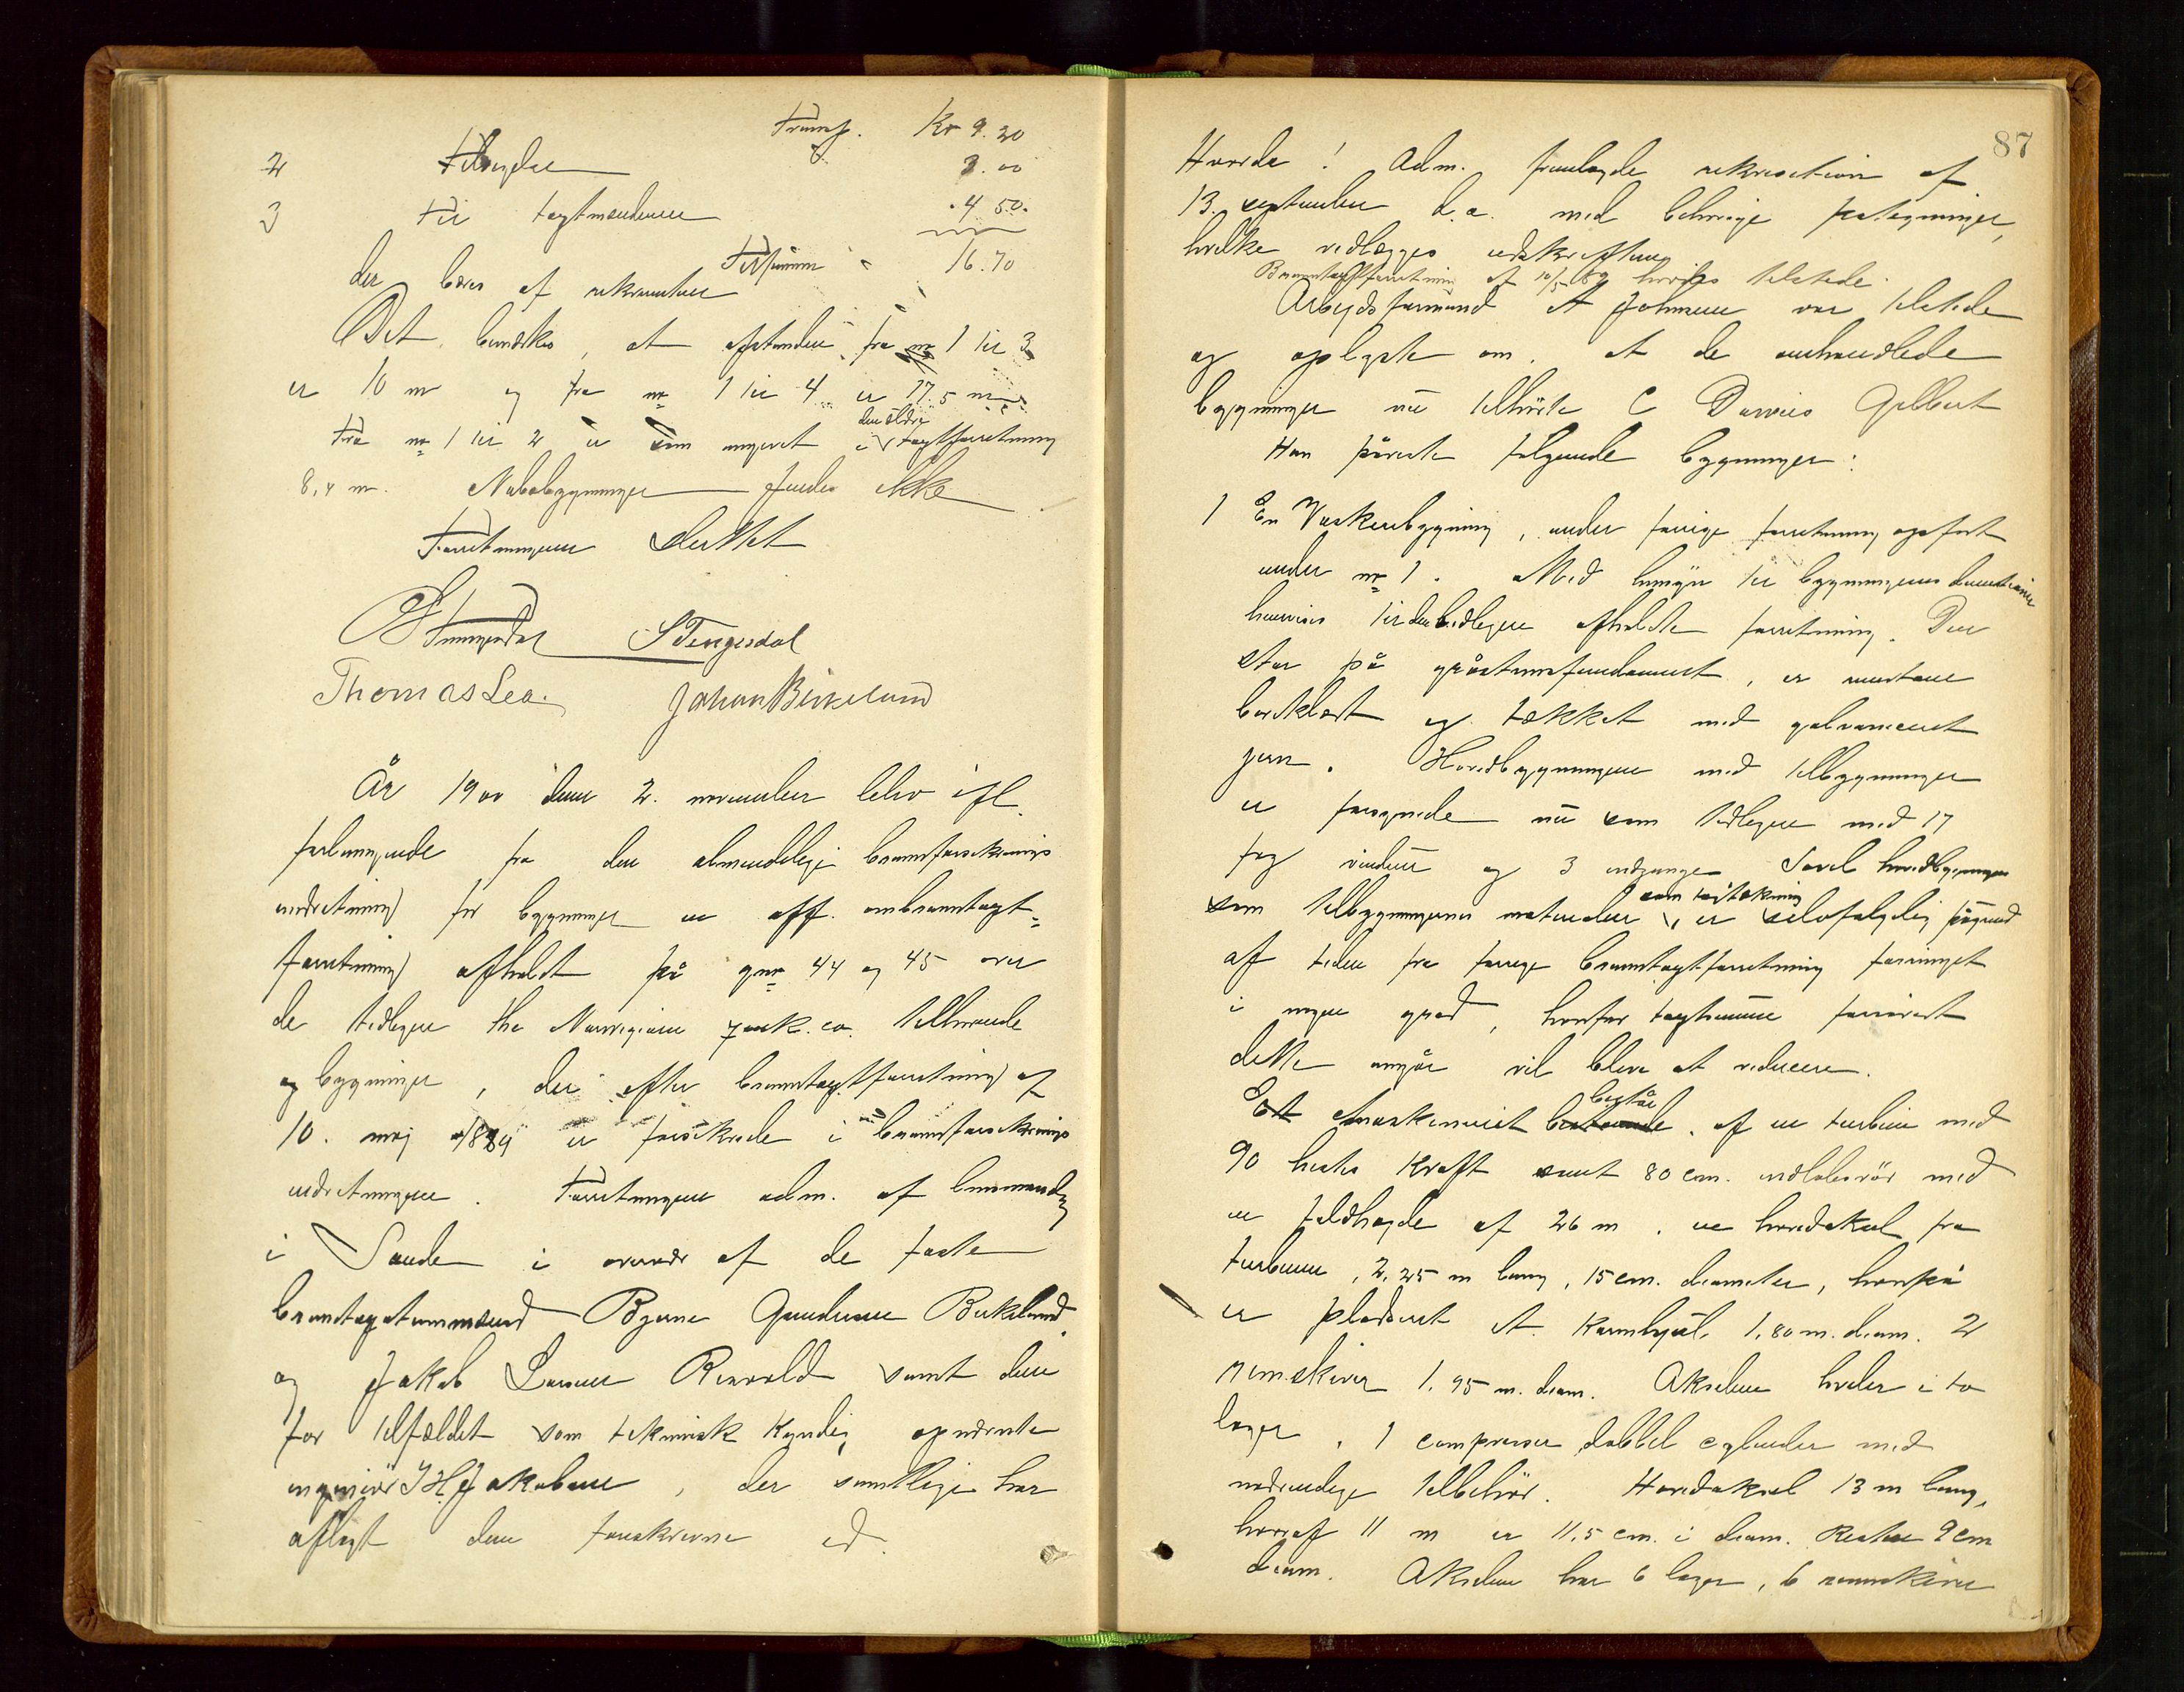 Transp. Kr 9.20
2 Tilsigelse 3.00
3 Til taxtmændene 4 50.
Tilsammen 16.70
der bæres af rekvirenten
Det bemærkes, at afstanden fra nr 1 til 3
er 10 m og fra nr 1 til 4 er 17.5 m
Fra nr 1 til 2 er som angivet i den ældre taxtforretning
8,4 m. Nabobygninger findes ikke
Forretningen sluttet
S Tengesdal
Thomas Lea. Johan Birkeland
År 1900 den 2. november blev ifl.
forlangende fra den almindelige brannforsikrings
indretning for bygninger en off. ombranntaxt-
forretning afholdt på gnr 44 og 45 over
de tidligere the Norwegian co. tilhørende
bygninger, der efter branntaxtforretning af
10. maj 1889 er forsikrede i brannforsikrings
indretningen. Forretningen adm. af lensmanden
i Sande i overvær af de faste
branntaxtmænd Bjerne Gundersen Birkeland
og Jakob Larsen Risvold samt den
for tilfældet som teknisk kyndig opnævnte
ingeniör I H Jakobsen, der samtlige har
aflagt den foreskrevne ed.
87
Hvorda! Adm. fremlagde rekvisition af
13. september d.a. med behørige påtegninger,
hvilke vedlægges udskriften
Branntaxtforretning af 10/5 89 havdes tilstede.
Arbejdsformand A Johnsen var tilstede
og oplyste om, at de omhandlede
bygninger nu tilhörte C Davies Gilbert
Han påviste følgende bygninger:
1 En Vaskeribygning, under forrige forretning opført
under nr 1. Med hensyn til bygningens dimensioner
henvises til den tidligere afholdte forretning. Den
står på gråstensfundament, er
bordklædt og tækket med galvaniseret
jern. Hovedbygningen med tilbygninger
er forsynede nu som tidligere med 17
fag vinduer og 3 indgange. Såvel hovedbygningen
som tilbygningernes materialer som tagtækning, er selvfølgelig pågrund
af tiden fra forrige branntaxtforretning forringet
i nogen grad, hvorfor taxtsummen forsåvidt
dette angår vil blive at reducere.
Et Maskineriet bestående består af en turbine med
90 hestes kraft samt 80 cm. indløbsrör med
en faldhøyde af 26 m. en hovedaksel fra
turbinen, 2.25 m lang, 15 cm. diameter, hvorpå
er pladseret et kamhjul 1.80 m. diam. 2
remskiver 1.95 m. diam. Akselen hviler i to
lager. 1 compressor dobbel cylinder med
nødvendige tilbehör. Hovedaksel 13 m lang,
hvoraf 11 m er 11.5 cm. i diam. Resten 9 cm
diam. Akselen har 6 lager, 6 remskiver